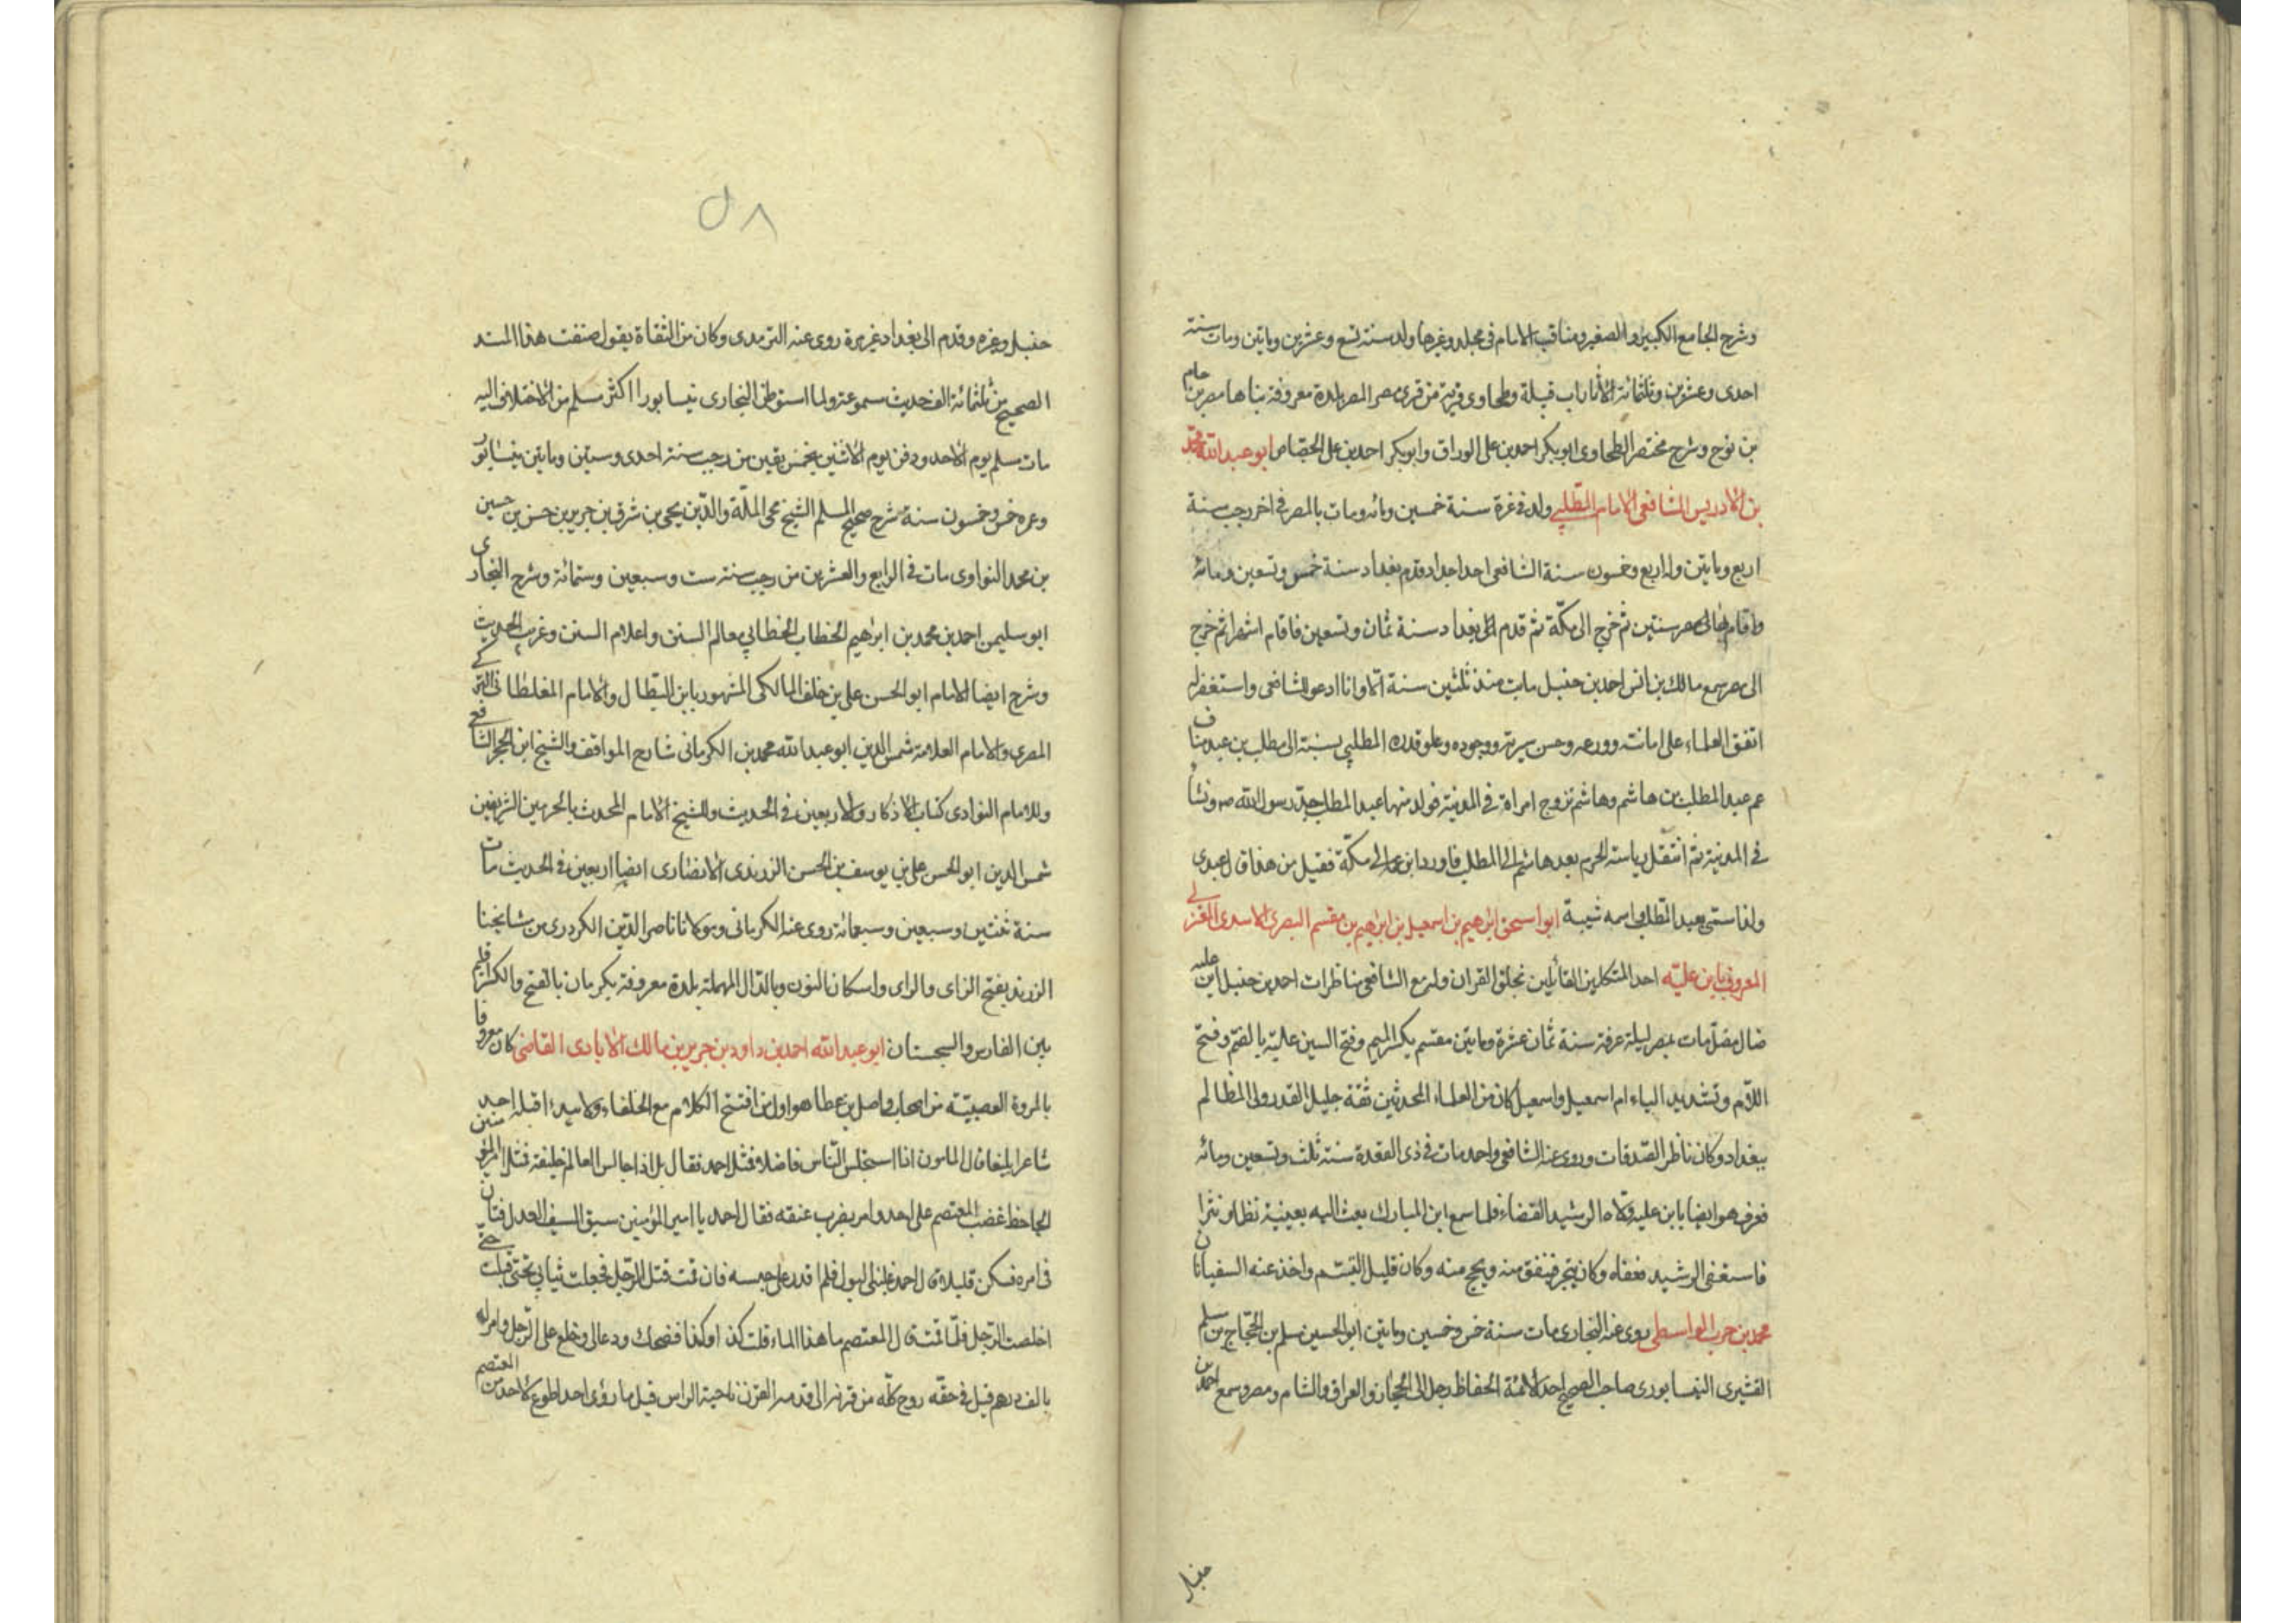 وشرح الجامع الكبير والصغير ومناقب الامام في مجلد وغيرها ولد سنة تسع وعشرين وماتين ومات سنة
احدى وعشرين وثلثمائة الأزد اب قبيلة وطحاوى قرية من قرى مصر المصر بلدة معروفة بناها مصر بن حام
بن نوح وشرح مختصر الطحاوى ابو بكر احمد بن على الوراق وابو بكر احمد بن على الجصاص ابو عبد الله محمد
بن الادريس الشافعى الامام المطلبى ولد فى غزة سنة خمسين ومائه ومات بالمصر فى اخر رجب سنة
اربع وماتين وله اربع وخمسون سنة الشافعى احد اجداد قدم بغداد سنة خمس وتسعين ومائه
واقام سنتين ثم خرج الى مكّة ثم قدم الى بغداد سنة ثمان وتسعين فاقام اشهرا ثم خرج
الى مصر سمع مالك بن انس احمد بن حنبل مابت منذ ثلثين سنة الا وانا ادعو للشافعى واستغفر له
اتفق العلماء على امانته وورعه وحسن سيرته ووجوده وعلو قدره المطلبى بنسبة الى مطلب بن عبد مناف
عم عبد المطلب بن هاشم وهاشم تزوج امراة فى المدينة فولد منها عبد المطلب جدّ رسول الله صم ونشأ
فى المدينة ثم انتقل رياسة الحرم بعد هاشم الى المطلب فاورد ابن عمه الى مكّة فقيل من هذا قال عبدى
ولذا سمّى بعبد المطلب واسمه شيبة ابو اسحق ابرهيم بن اسمعيل بن ابرهيم بن مقسم البصرى الاسدى الغزلى
المعروف بابن عليّه احد المتكلمين القائلين بخلق القران وله مع الشافعى مناظرات احمد بن حنبل ابن عليه
ضال مضلّ مات بمصر ليلة عرفة سنة ثمان عشرة وماتين مقسم بكسر الميم وفتح السين عليّه بالضم وفتح
اللام وتشديد الياء ام اسمعيل واسمعيل كان من العلماء المحدثين ثقة جليل القدر ولى المظالم
ببغداد وكان ناظر الصّدقات وروى عنه الشافعى واحمد مات فى ذى القعدة سنة ثلث وتسعين ومائه
فعرف هو ايضا بابن عليه وولّاه الرشيد القضاء فلما سمع ابن المبارك بعث اليه بعينية نظما ونثرا
فاستعفى الرشيد فعفاه وكان يتجر فينفق منه ويحج منه وكان قليل التبسّم واخذ عنه السفيانان
محمد بن حرب الواسطى روى عنه البخارى مات سنة خمس وخمسين وماتين ابو الحسين مسلم بن الحجّاج بن مسلم
القشيرى النيسابورى صاحب الصحيح احد الائمة الحفاظ رحل الى الحجاز والعراق والشام ومصر وسمع احمد بن
حنبل
٥٨
حنبل وغيره وقدم الى بغداد غير مرة روى عنه الترمدى وكان من الثقاة يقول صنفت هذا المسند
الصحيح من ثلثمائة الف حديث مسموعة ولما استوطن البخارى نيسابورا اكثر مسلم من الاختلاف اليه
مات مسلم يوم الاحد ودفن يوم الاثنين بخمس بقين من رجب سنة احدى وستين وماتين بنيسابور
وعمره خمس وخمسون سنة شرح صحيح المسلم الشيخ محى الملّة والدّين يحيى بن شرق بن جرير بن حسن بن حسين
بن محمد النواوى مات فى الرابع والعشرين من رجب سنة ست وسبعين وستمائة وشرح البخارى
ابو سليمن احمد بن محمد بن ابراهيم الخطاب الخطابى معالم السنن واعلام السنن وغريب الحديث
وشرح ايضا الامام ابو الحسن على بن خلف المالكى المشهور بابن البطّال والامام المغلطاى التركى
المصرى والامام العلامة شمس الدين ابو عبد الله محمد بن الكرمانى شارح المواقف والشيخ ابن الحجر الشافعى
وللامام النوادى كتاب الاذكار والاربعين فى الحديث وللشيخ الامام المحدث بالحرمين الشريفين
شمس الدين ابو الحسن على بن يوسف بن الحسن الزرندى الانصارى ايضا اربعين فى الحديث مات
سنة ثنتين وسبعين وسبعمائة روى عنه الكرمانى ومولانا ناصر الدّين الكردرى من مشايخنا
الزرند بفتح الزاى والراى واسكان النون وبالدّال المهملة بلدة معروفة بكرمان بالفتح والكسر اقليم
بين الفارس والسجستان ابو عبد الله احمد بن داود بن جرير بن مالك الايادى القاضى كان معروفا
بالمروة العصبيّة من اصحاب واصل بن عطا هو اول من افتتح الكلام مع الخلفاء ولا يبدء قبله احد
شاعرا بليغا قال المامون اذا استجلس النّاس فاضلا فمثل احمد فقال بل اذا جالس العالم خليفة فمثل امير المؤمنين
الجاحظ غضب المعتصم على احد وامر بضرب عنقه فقال احمد يا امير المؤمنين سبق السيف العدل فتأن
فى امره فسكن قليلا قال احمد غلبنى البول فلم اقدر على حبسه فان قمت قتل الرّجل فجعلت ثيابى تحتى حتى قلت
اخلصت الرّجل فلمّا قمت قال المعتصم ما هذا الماء قلت كذا وكذا فضحك ودعا لى وخلع على الرّجل وامر له
بالف درهم قيل فى حقّه روح كلّه من قرنه الى قدمه القرن ناحية الراس قيل ما رؤى احد اطوع لاحد من المعتصم